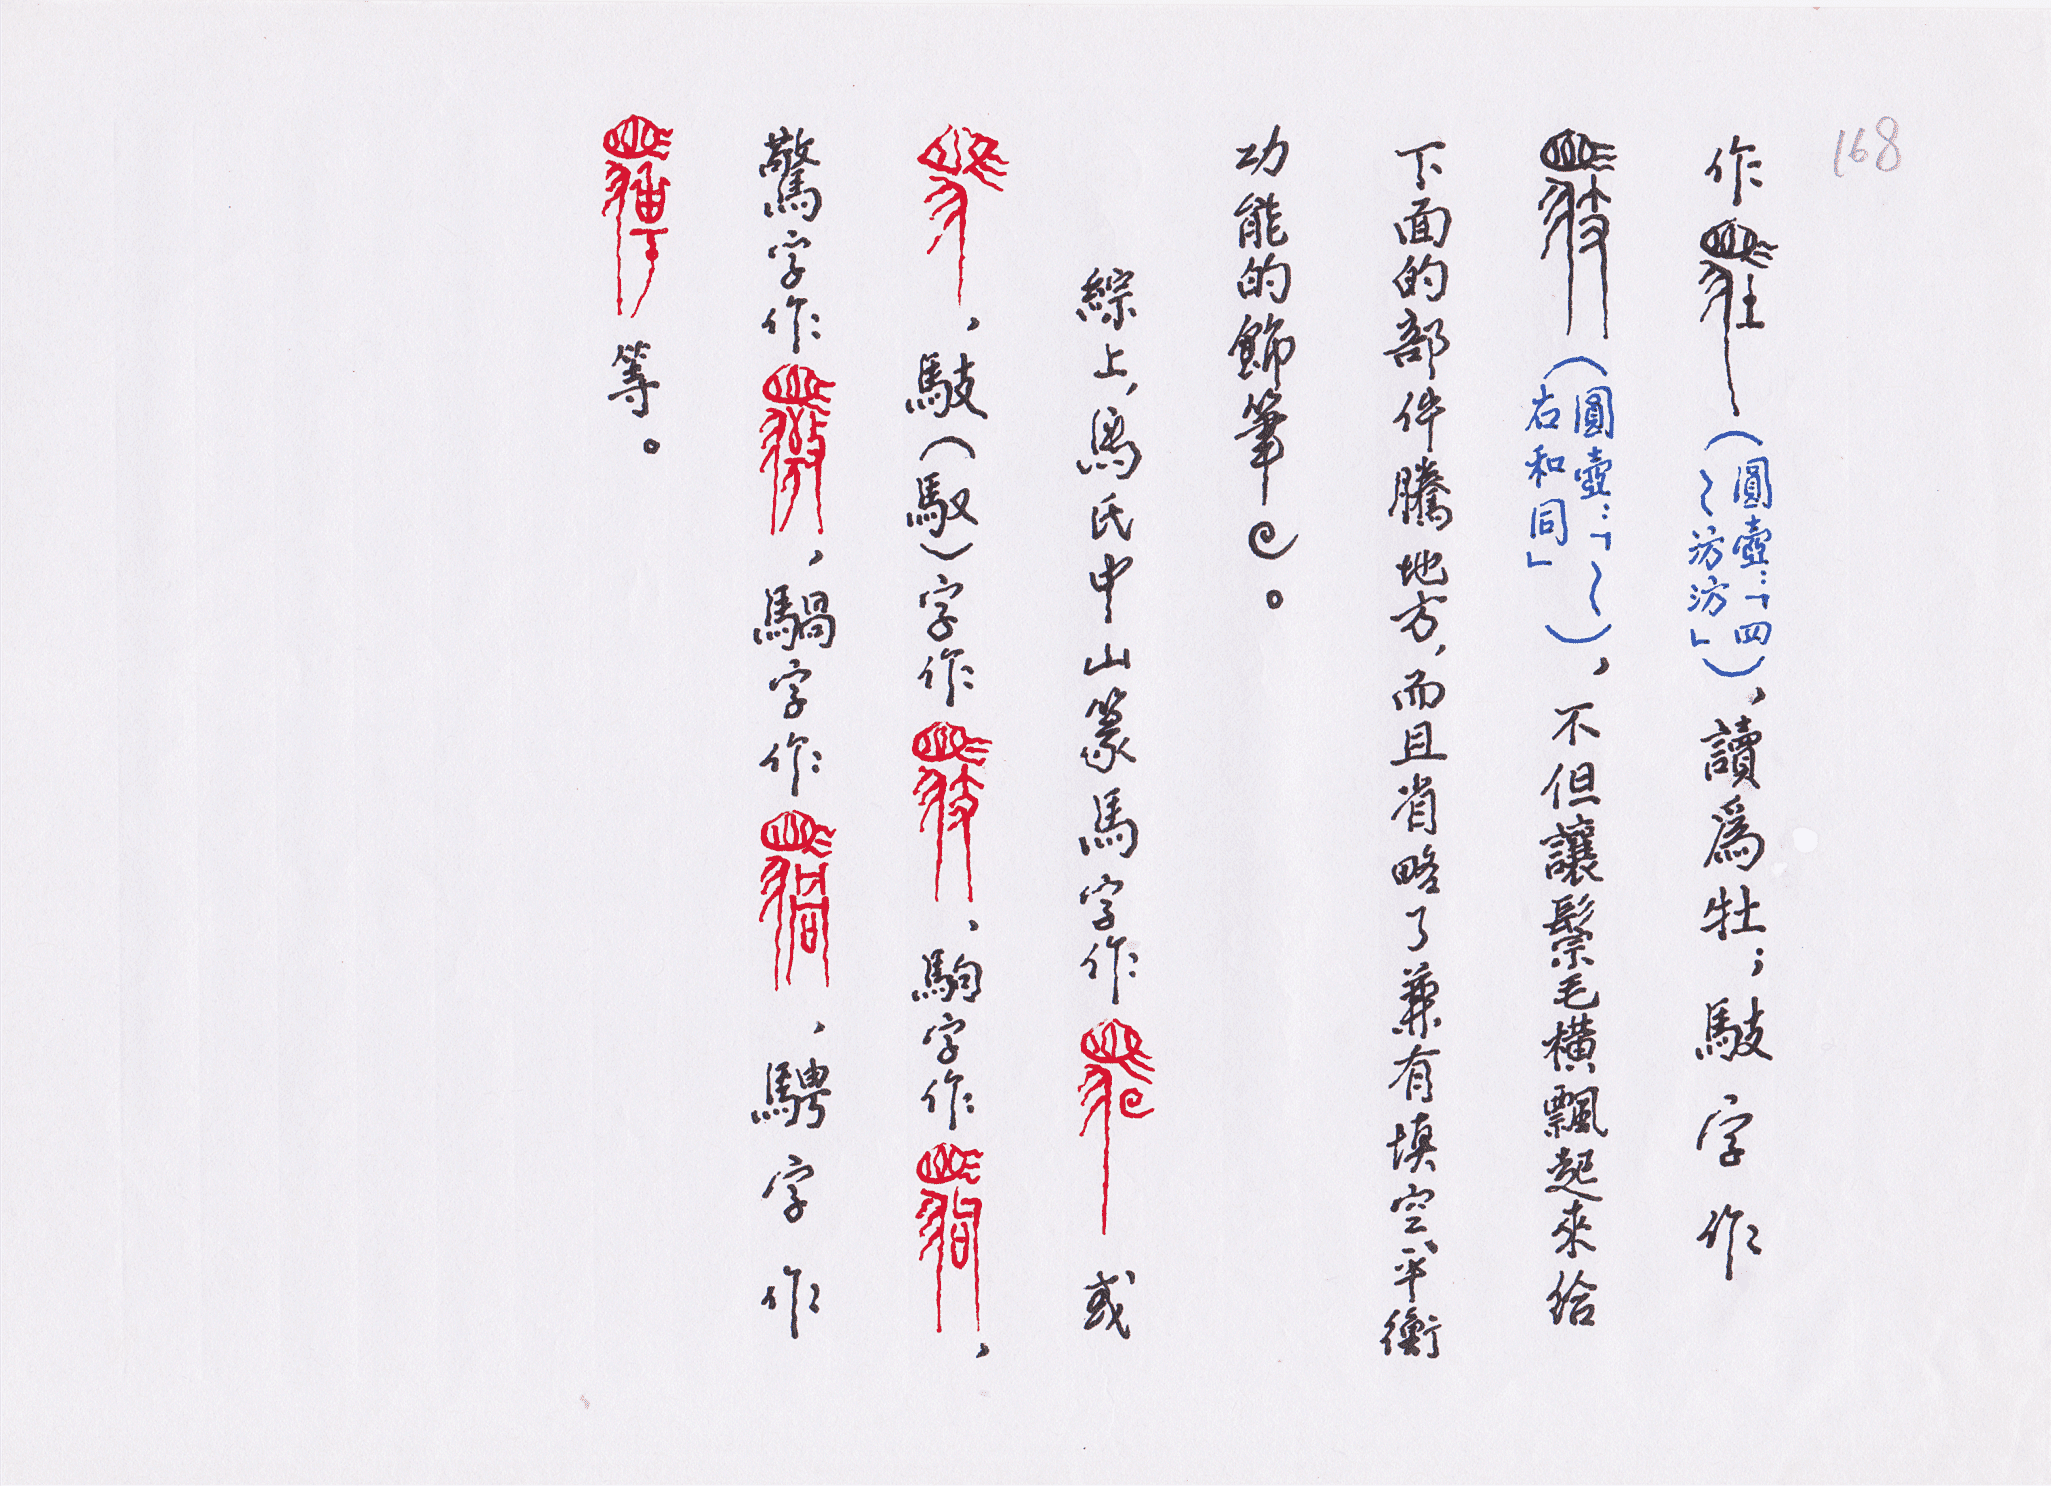 168
作（圓壺：「四〜汸汸」），讀爲牡；馶字作
（圓壺：「〜右和同」），不但讓鬃毛橫飄起來給
下面的部件騰地方，而且省略了兼有填空、平衡
功能的飾筆。
綜上，馮氏中山篆馬字作或
，馶（馭）字作，駒字作，
驚字作，騧字作，騁字作
等。